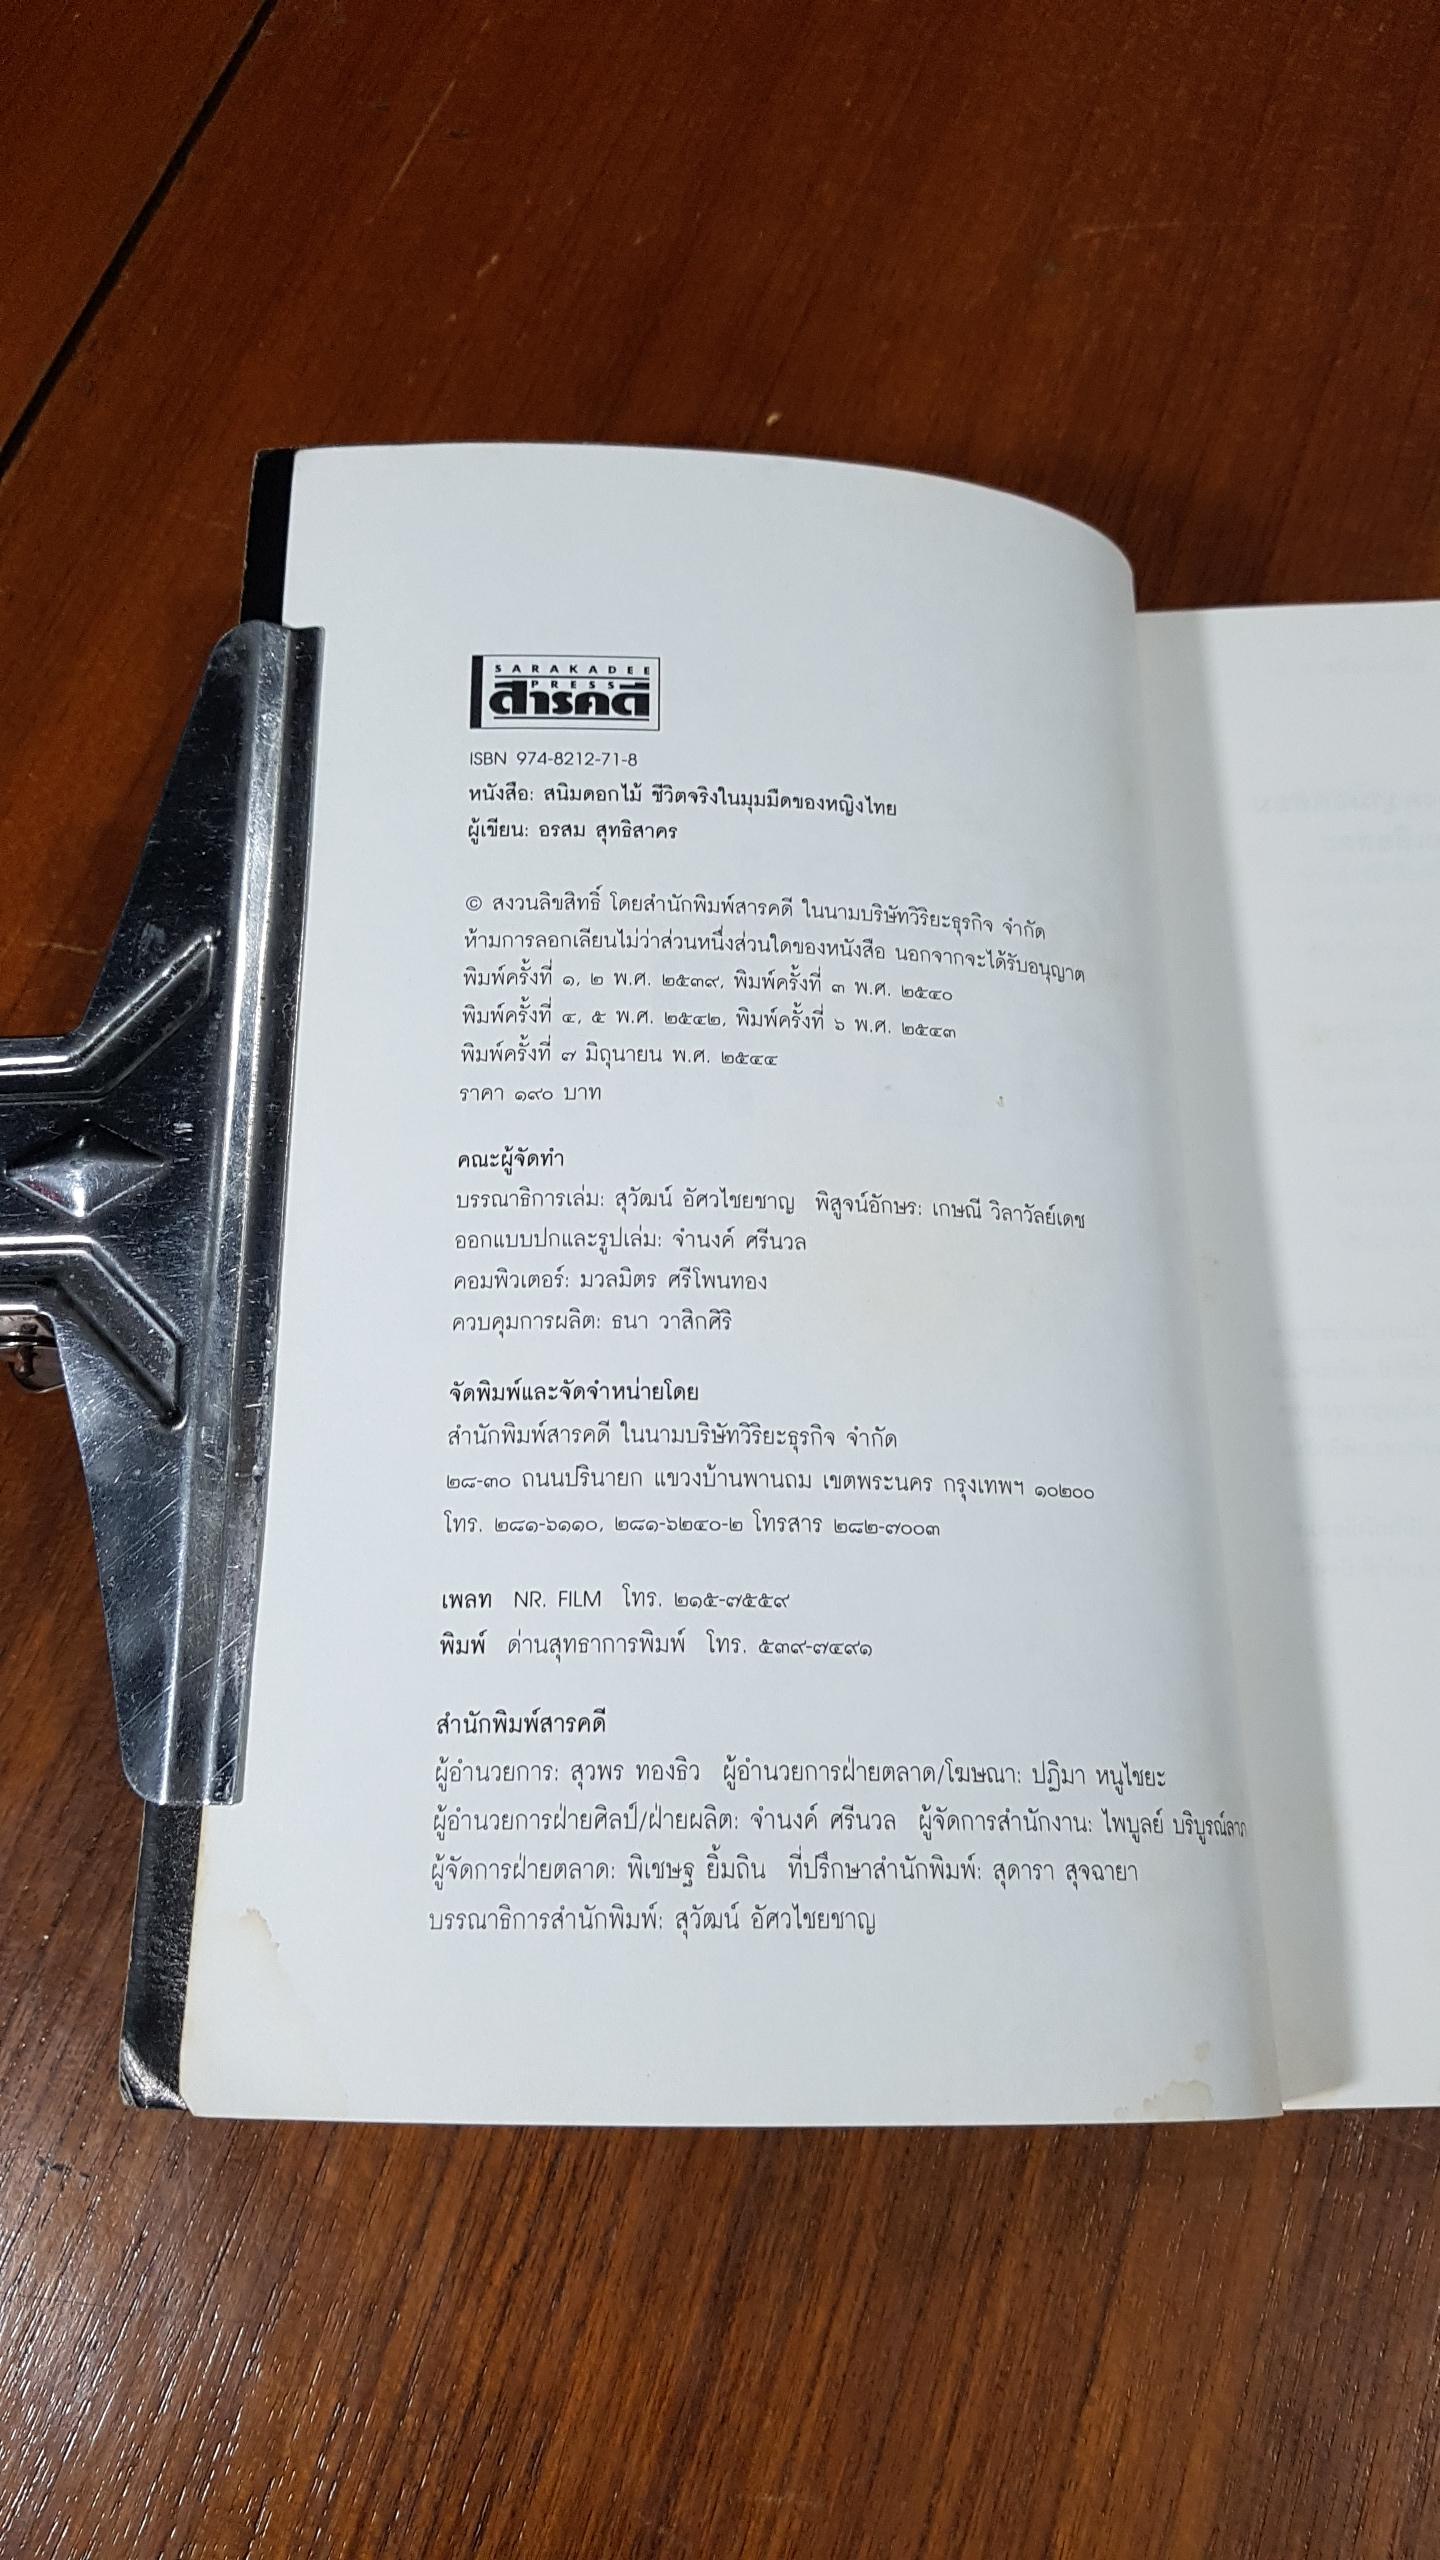 SARAKADEE
PRESS
สารคดี
ISBN 974-8212-71-8
หนังสือ: สนิมดอกไม้ ชีวิตจริงในมุมมืดของหญิงไทย
ผู้เขียน: อรสม สุทธิสาคร
© สงวนลิขสิทธิ์ โดยสำนักพิมพ์สารคดี ในนามบริษัทวิริยะธุรกิจ จำกัด
ห้ามการลอกเลียนไม่ว่าส่วนหนึ่งส่วนใดของหนังสือ นอกจากจะได้รับอนุญาต
พิมพ์ครั้งที่ ๑, ๒ พ.ศ. ๒๕๓๙, พิมพ์ครั้งที่ ๓ พ.ศ. ๒๕๔๐
พิมพ์ครั้งที่ ๔, ๕ พ.ศ. ๒๕๔๒, พิมพ์ครั้งที่ ๖ พ.ศ. ๒๕๔๓
พิมพ์ครั้งที่ ๗ มิถุนายน พ.ศ. ๒๕๔๔
ราคา ๑๙๐ บาท
คณะผู้จัดทำ
บรรณาธิการเล่ม: สุวัฒน์ อัศวไชยชาญ พิสูจน์อักษร: เกษณี วิลาวัลย์เดช
ออกแบบปกและรูปเล่ม: จำนงค์ ศรีนวล
คอมพิวเตอร์: มวลมิตร ศรีโพนทอง
ควบคุมการผลิต: ธนา วาสิกศิริ
จัดพิมพ์และจัดจำหน่ายโดย
สำนักพิมพ์สารคดี ในนามบริษัทวิริยะธุรกิจ จำกัด
๒๘-๓๐ ถนนปรินายก แขวงบ้านพานถม เขตพระนคร กรุงเทพฯ ๑๐๒๐๐
โทร. ๒๘๑-๖๑๑๐, ๒๘๑-๖๒๔๐-๒ โทรสาร ๒๘๒-๗๐๐๓
เพลท NR. FILM โทร. ๒๑๕-๗๕๕๙
พิมพ์ ด่านสุทธาการพิมพ์ โทร. ๕๓๙-๗๔๙๑
สำนักพิมพ์สารคดี
ผู้อำนวยการ: สุวพร ทองธิว ผู้อำนวยการฝ่ายตลาด/โฆษณา: ปฏิมา หนูไชยะ
ผู้อำนวยการฝ่ายศิลป์/ฝ่ายผลิต: จำนงค์ ศรีนวล ผู้จัดการสำนักงาน: ไพบูลย์ บริบูรณ์ลาภ
ผู้จัดการฝ่ายตลาด: พิเชษฐ ยิ้มถิน ที่ปรึกษาสำนักพิมพ์: สุดารา สุจฉายา
บรรณาธิการสำนักพิมพ์: สุวัฒน์ อัศวไชยชาญ